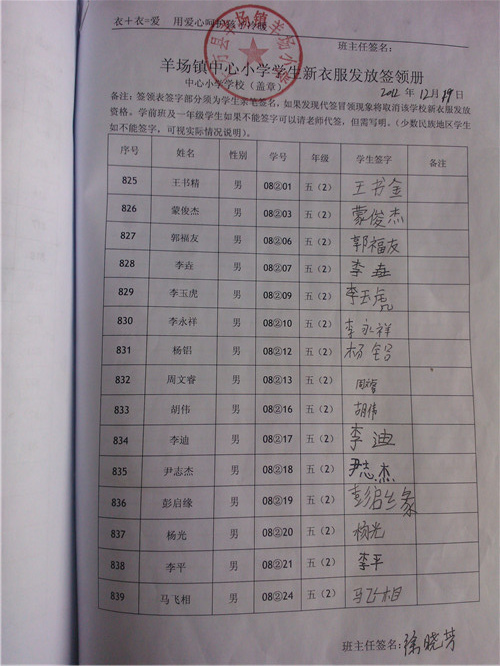 衣+衣=爱 用爱心呵护孩子冷暖
班主任签名:
羊场镇中心小学学生新衣服发放签领册
中心小学学校(盖章) 2012年12月19日
备注:签领表签字部分须为学生亲笔签名,如果发现代签冒领现象将取消该学校新衣服发放
资格。学前班及一年级学生如果不能签字可以请老师代签,但需写明。(少数民族地区学生
如不能签字,可视实际情况说明)。
序号 姓名 性别 学号 年级 学生签字 备注
825 王书精 男 08②01 五(2) 王书金
826 蒙俊杰 男 08②03 五(2) 蒙俊杰
827 郭福友 男 08②06 五(2) 郭福友
828 李垚 男 08②07 五(2) 李垚
829 李玉虎 男 08②09 五(2) 李玉虎
830 李永祥 男 08②10 五(2) 李永祥
831 杨铝 男 08②12 五(2) 杨铝
832 周文睿 男 08②13 五(2)
833 胡伟 男 08②16 五(2) 胡伟
834 李迪 男 08②17 五(2) 李迪
835 尹志杰 男 08②18 五(2) 尹志杰
836 彭启缘 男 08②19 五(2) 彭启缘
837 杨光 男 08②20 五(2) 杨光
838 李平 男 08②21 五(2) 李平
839 马飞相 男 08②24 五(2) 马飞相
班主任签名:徐晓芳